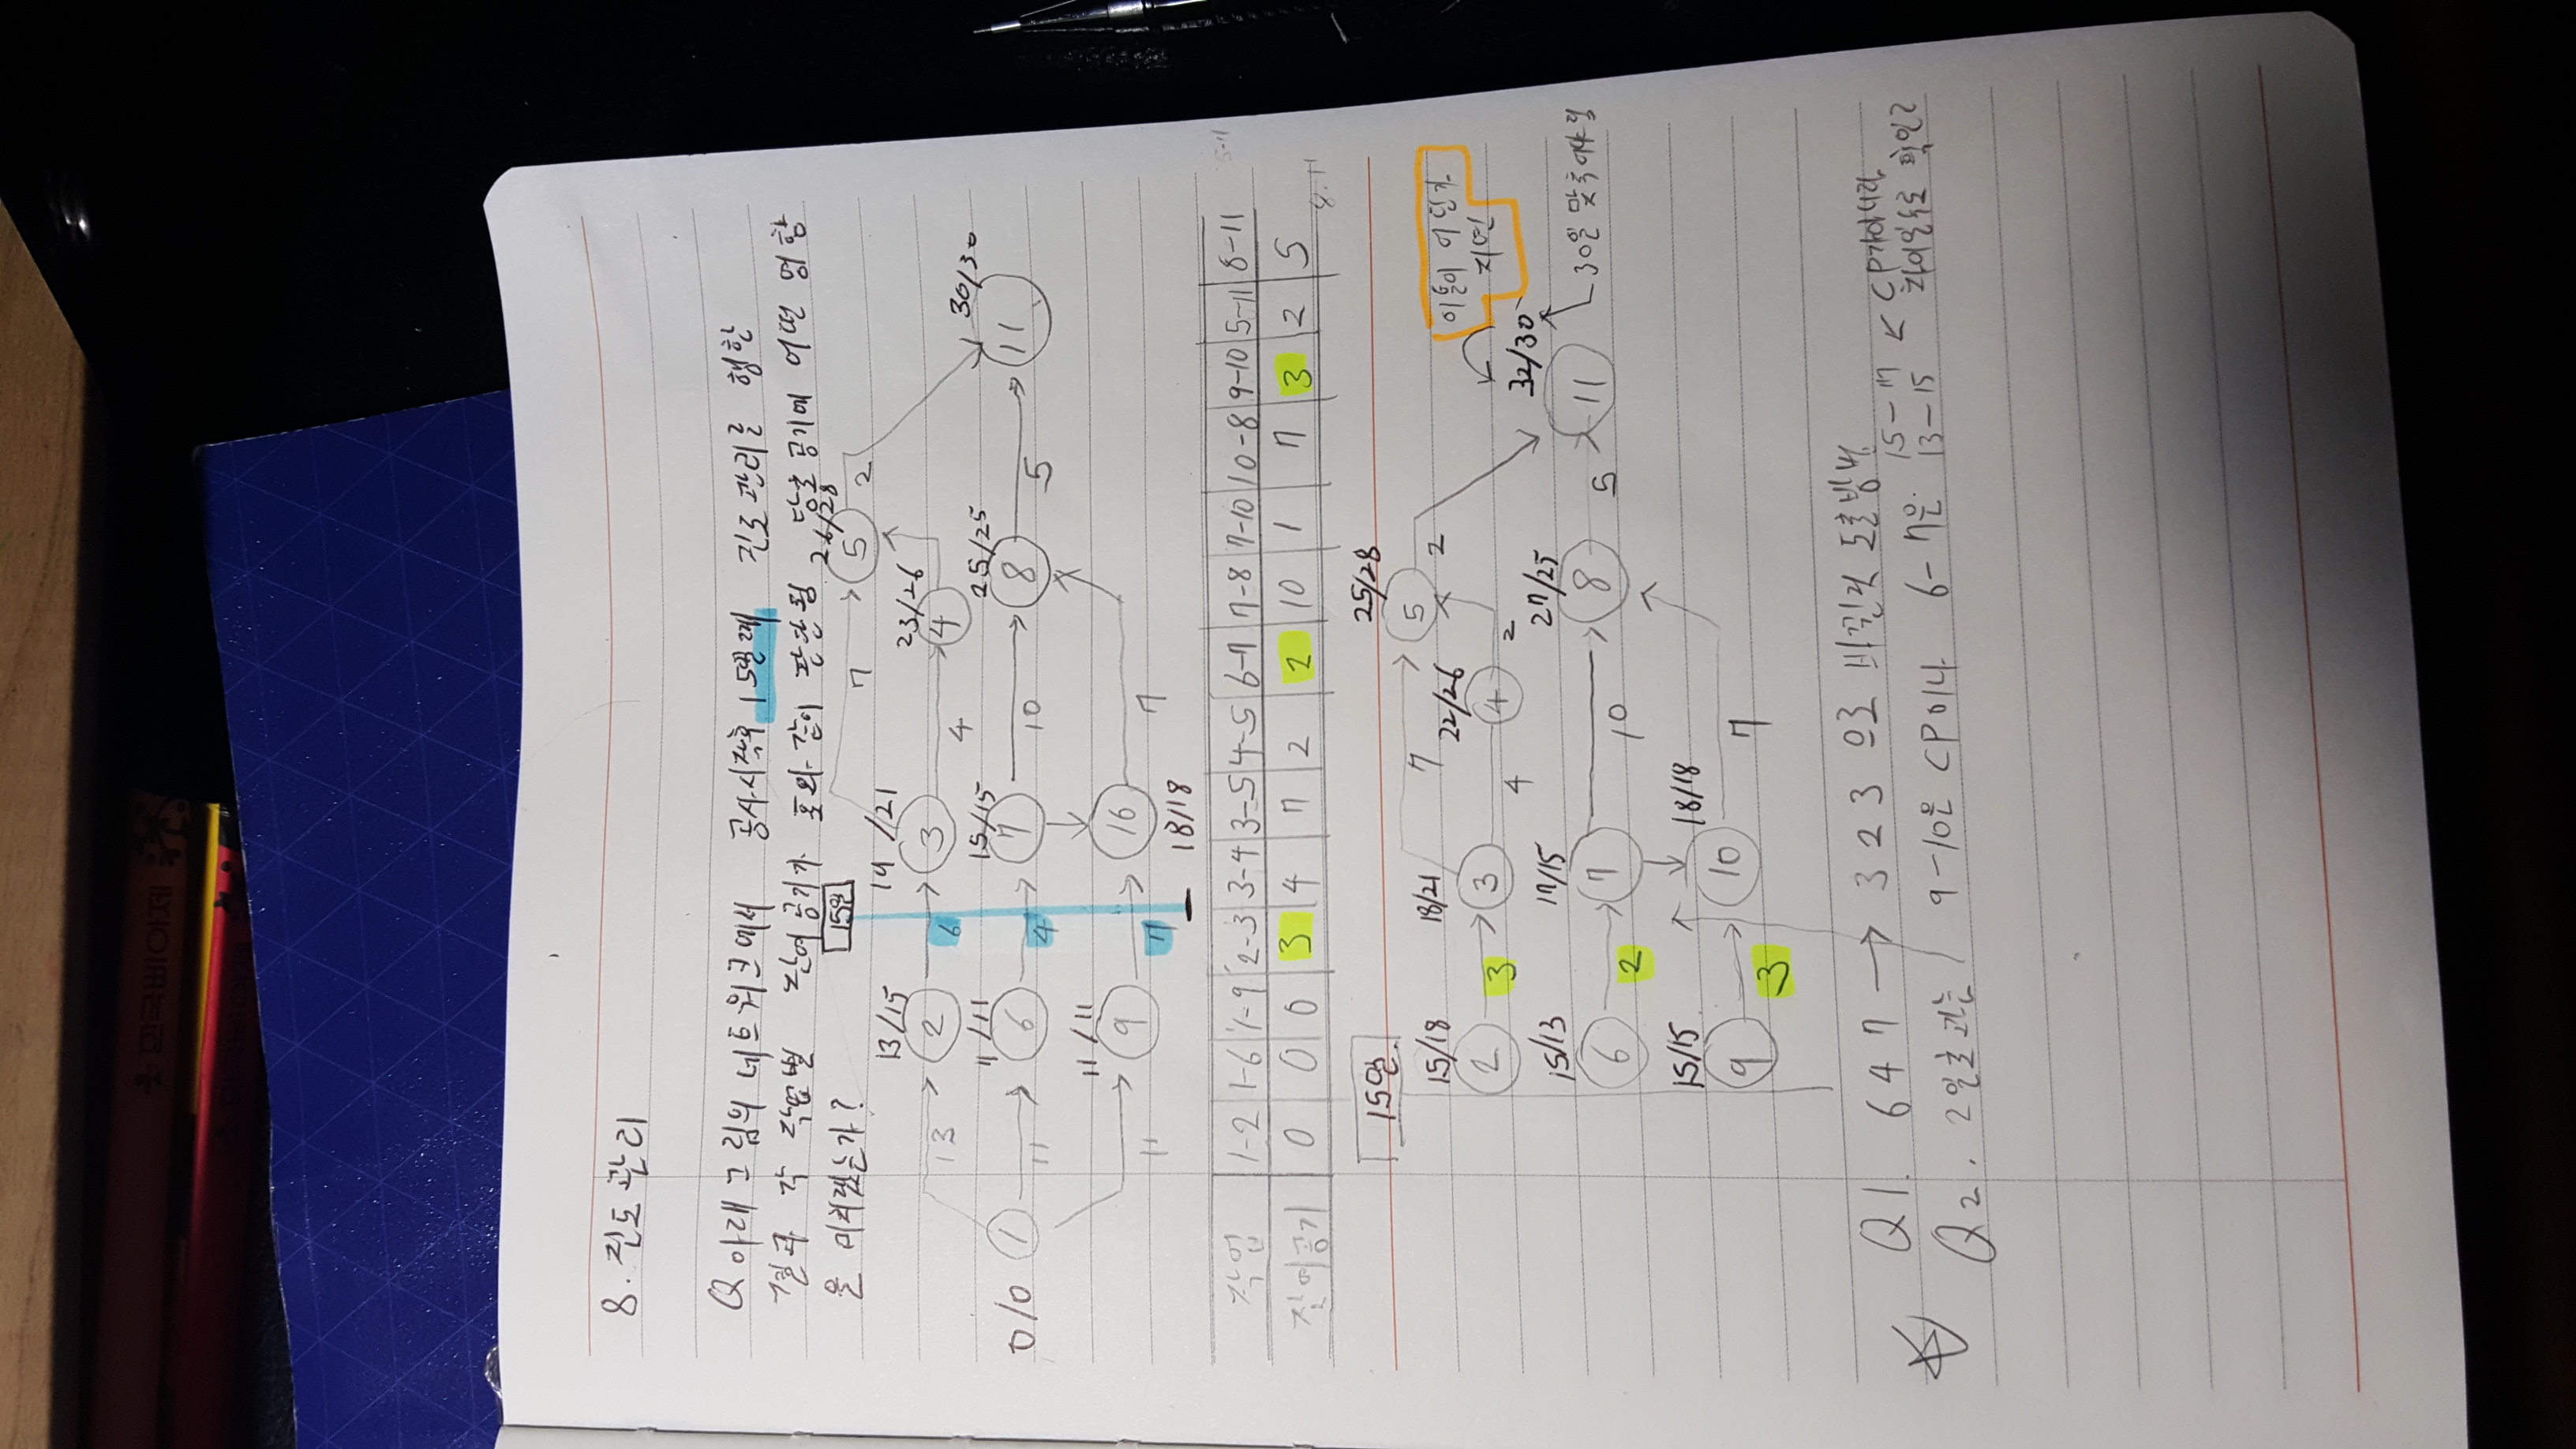 8. 진도관리
Q 아래 그림의 네트워크에서 공사시작후 15일째 진도관리를 행한
결과 각 작업별 잔여공기가 표와 같이 판단됨 당초 공기에 어떤 영향
을 미치겠는가?
15일
7
26/28
5
2
13/15
2
6
19/21
3
4
23/26
4
30/30
11
13
0/0
1
11
11/11
6
4
15/15
7
10
25/25
8
5
11
11/11
9
7
16
18/18
7
작업 1-2 1-6 1-9 2-3 3-4 3-5 4-5 6-7 7-8 7-10 10-8 9-10 5-11 8-11
잔여공기 0 0 0 3 4 7 2 2 10 1 7 3 2 5
15일
25/28
5
2
이틀이 어딘가
지연
7
15/18
2
3
18/21
3
4
22/26
4
2
32/30
11
30일 맞춰야됨
15/13
6
2
17/15
7
10
27/25
8
5
15/15
9
3
18/18
10
7
Q1. 6 4 7 → 3 2 3 으로 바뀐것 도출방법
Q2. 2일초과는 / 9-10은 CP이나 6-7은 15-17 < CP가아니라
13-15 차이일수로 확인